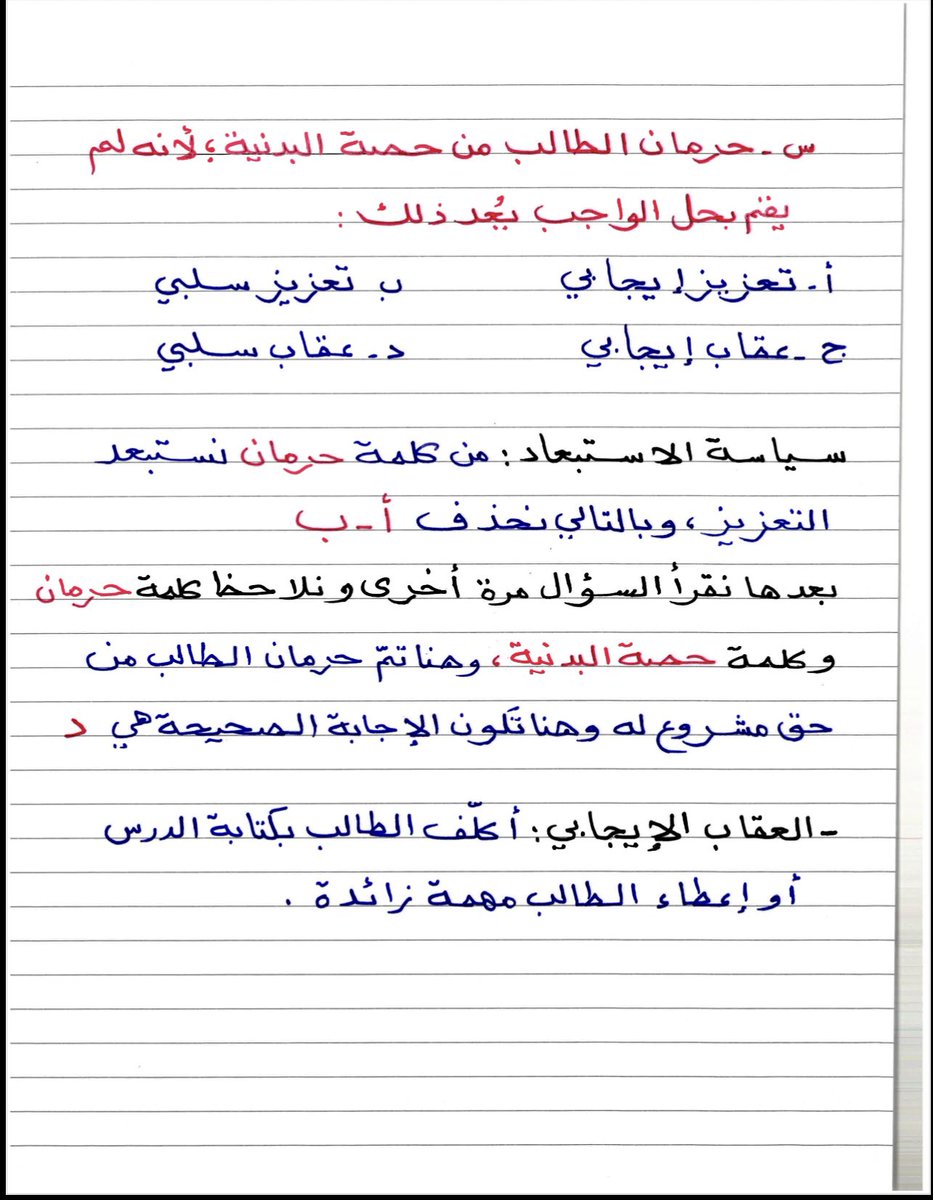 س - حرمان الطالب من حصة البدنية؛ لأنه لم
يقم بحل الواجب يُعد ذلك :
أ - تعزيز إيجابي ب تعزيز سلبي
ج - عقاب إيجابي د - عقاب سلبي
سياسة الاستبعاد : من كلمة حرمان نستبعد
التعزيز ، وبالتالي نحذف أ - ب
بعدها نقرأ السؤال مرة أخرى ونلاحظ كلمة حرمان
وكلمة حصة البدنية ، وهنا تمّ حرمان الطالب من
حق مشروع له وهنا تَكون الإجابة الصحيحة هي د
- العقاب الإيجابي : أكلّف الطالب بكتابة الدرس
أو إعطاء الطالب مهمة زائدة .